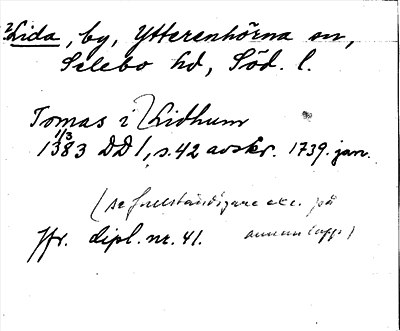 2 Lida, by, Ytterenhörna sn,
Selebo hd, Söd. l.
Tomas i Lidhum
11/3
1383 DD 1, s. 42 avskr. 1739. jan.
(se fullständigare exc. på
Jfr. dipl. nr. 41. annan lapp)